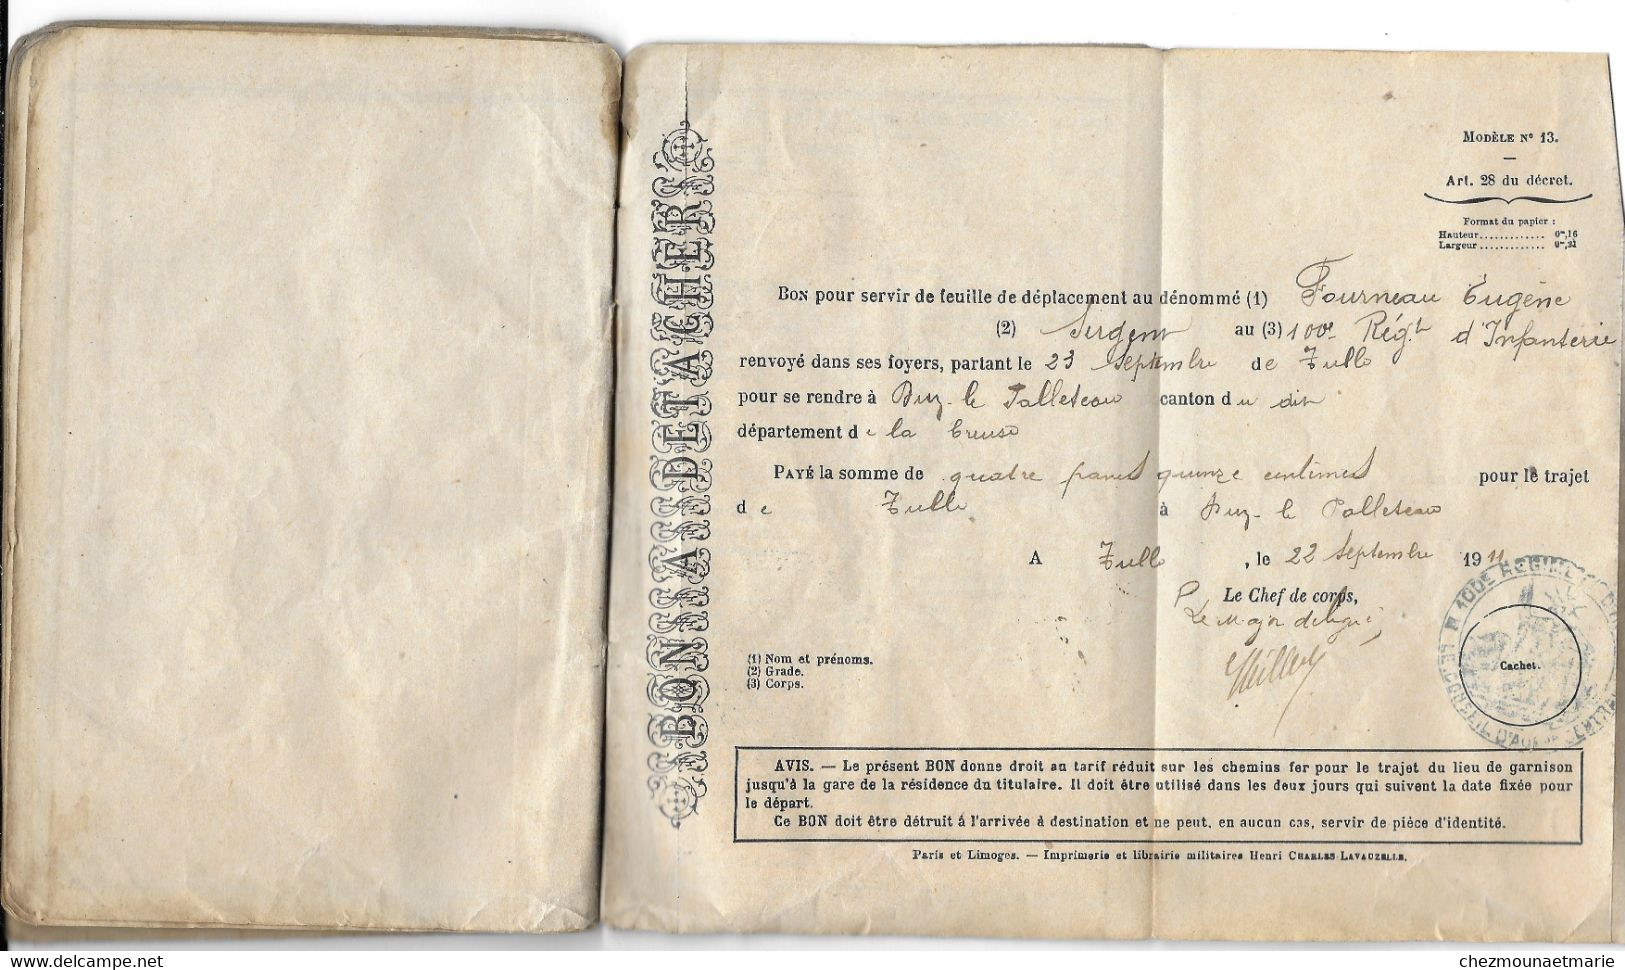 BONS A DÉTACHER
MODÈLE N° 13.
Art. 28 du décret.
Format du papier :
Hauteur............. 0m,16
Largeur............. 0m,21
BON pour servir de feuille de déplacement au dénommé (1) Fourneau Eugène
(2) Sergent au (3) 100e Régt d'Infanterie
renvoyé dans ses foyers, partant le 23 Septembre de Tulle
pour se rendre à le canton du dit
département de la Creuse
PAYÉ la somme de quatre francs quinze centimes pour le trajet
de Tulle à le
A Tulle, le 22 Septembre 1911
Le Chef de corps,
P Le Major délégué,
(1) Nom et prénoms.
(2) Grade.
(3) Corps.
100E REGIME
LE CONSEIL D'AD CENTRAL
Cachet.
AVIS. — Le présent BON donne droit au tarif réduit sur les chemins fer pour le trajet du lieu de garnison
jusqu'à la gare de la résidence du titulaire. Il doit être utilisé dans les deux jours qui suivent la date fixée pour
le départ.
Ce BON doit être détruit à l'arrivée à destination et ne peut, en aucun cas, servir de pièce d'identité.
Paris et Limoges. — Imprimerie et librairie militaires Henri CHARLES-LAVAUZELLE.
www.delcampe.net
chezmounaetmarie